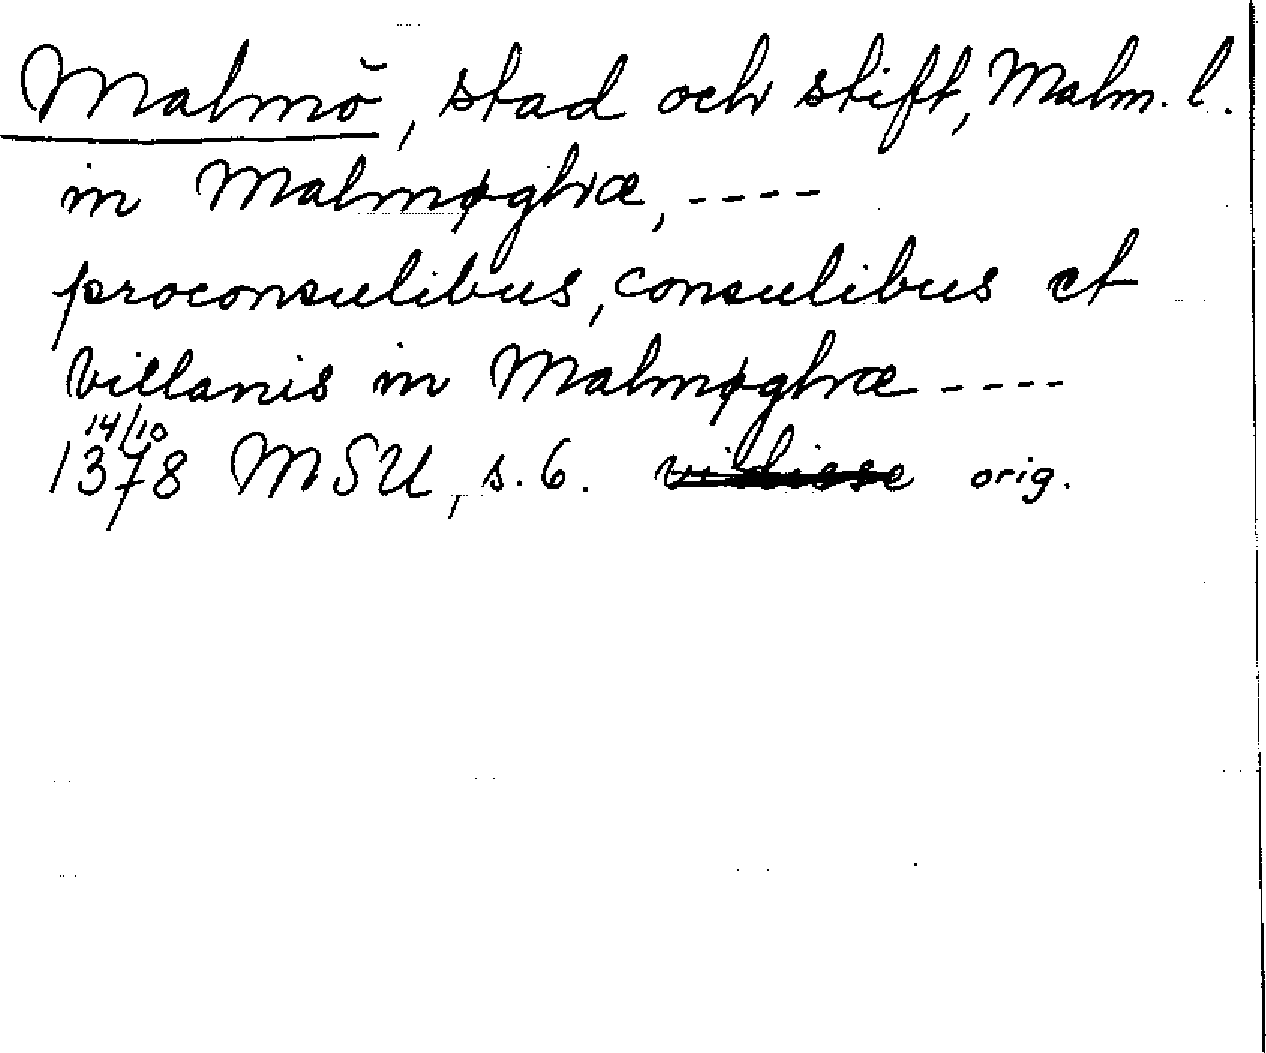 Malmö, stad och stift, Malm. l.
in Malmøghæ, ----
proconsulibus, consulibus et
villanis in Malmøghæ ----
14/10
1378 MSU, s. 6. vidisse orig.